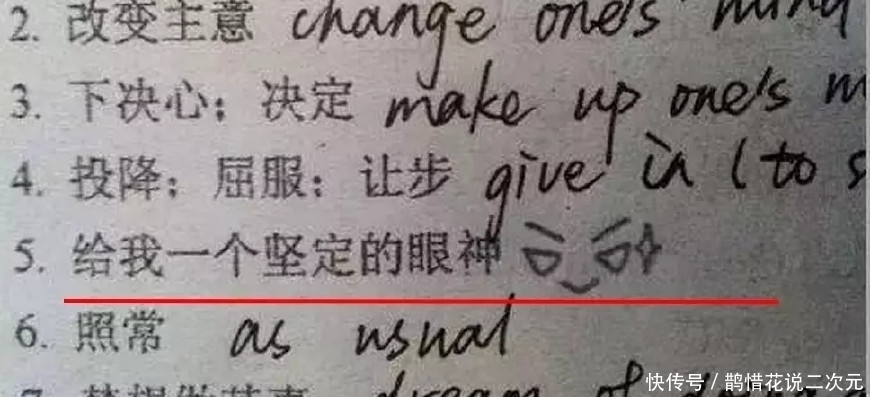 2. 改变主意 change one's mind
3. 下决心；决定 make up one's m
4. 投降；屈服；让步 give in (to s
5. 给我一个坚定的眼神
6. 照常 as usual
dream of
快传号/鹊惜花说二次元